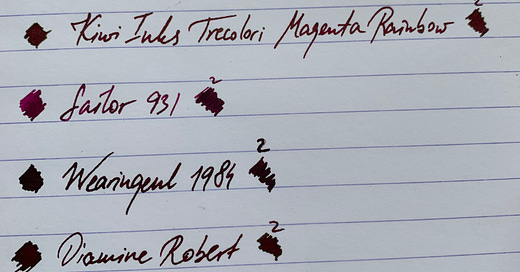 Kiwi Inks Trecolori Magenta Rainbow 2
Sailor 931 2
Wearingeul 1984 2
Diamine Robert 2